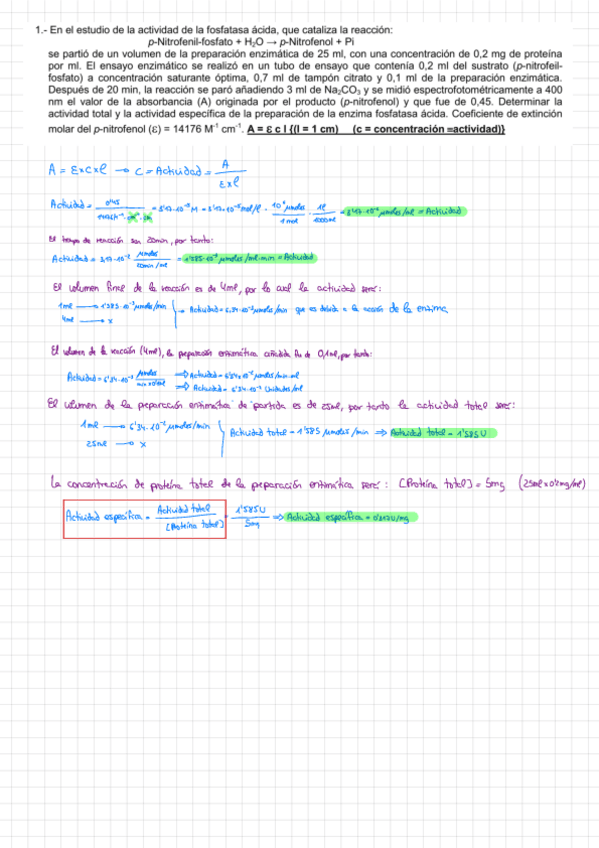 1.- En el estudio de la actividad de la fosfatasa ácida, que cataliza la reacción:
p-Nitrofenil-fosfato + H₂O → p-Nitrofenol + Pi
se partió de un volumen de la preparación enzimática de 25 ml, con una concentración de 0,2 mg de proteína
por ml. El ensayo enzimático se realizó en un tubo de ensayo que contenía 0,2 ml del sustrato (p-nitrofeil-
fosfato) a concentración saturante óptima, 0,7 ml de tampón citrato y 0,1 ml de la preparación enzimática.
Después de 20 min, la reacción se paró añadiendo 3 ml de Na₂CO₃ y se midió espectrofotométricamente a 400
nm el valor de la absorbancia (A) originada por el producto (p-nitrofenol) y que fue de 0,45. Determinar la
actividad total y la actividad específica de la preparación de la enzima fosfatasa ácida. Coeficiente de extinción
molar del p-nitrofenol (ε) = 14176 M⁻¹ cm⁻¹. A = ε c l {(l = 1 cm) (c = concentración =actividad)}
A = ε×c×l → c = Actividad = A / ε×l
Actividad = 0'45 / 14176 M⁻¹·cm⁻¹·cm = 3'17·10⁻⁵ M = 3'17·10⁻⁵ mol/l · 10⁶ μmoles / 1 mol · 1l / 1000ml = 3'17·10⁻² μmoles/ml = Actividad
El tiempo de reacción son 20min, por tanto:
Actividad = 3,17·10⁻² μmoles / 20min/ml = 1'585·10⁻³ μmoles/ml·min = Actividad
El volumen final de la reacción es de 4ml, por lo cual la actividad será:
1ml → 1'585·10⁻³ μmoles/min
4ml → x
→ Actividad = 6,34·10⁻³ μmoles/min que es debida a la acción de la enzima
El volumen de la reacción (4ml), la preparación enzimática añadida fue de 0,1ml, por tanto:
Actividad = 6'34·10⁻³ μmoles / min×0'1ml ⇒ Actividad = 6'34×10⁻² μmoles/min·ml
⇒ Actividad = 6'34·10⁻² Unidades/ml
El volumen de la preparación enzimática de partida es de 25ml, por tanto la actividad total será:
1ml → 6'34·10⁻² μmoles/min
25ml → x
Actividad total = 1'585 μmoles/min ⇒ Actividad total = 1'585 U
La concentración de proteína total de la preparación enzimática será: [Proteína total] = 5mg (25ml×0'2mg/ml)
Actividad específica = Actividad total / [Proteína total] = 1'585U / 5mg ⇒ Actividad específica = 0'317U/mg